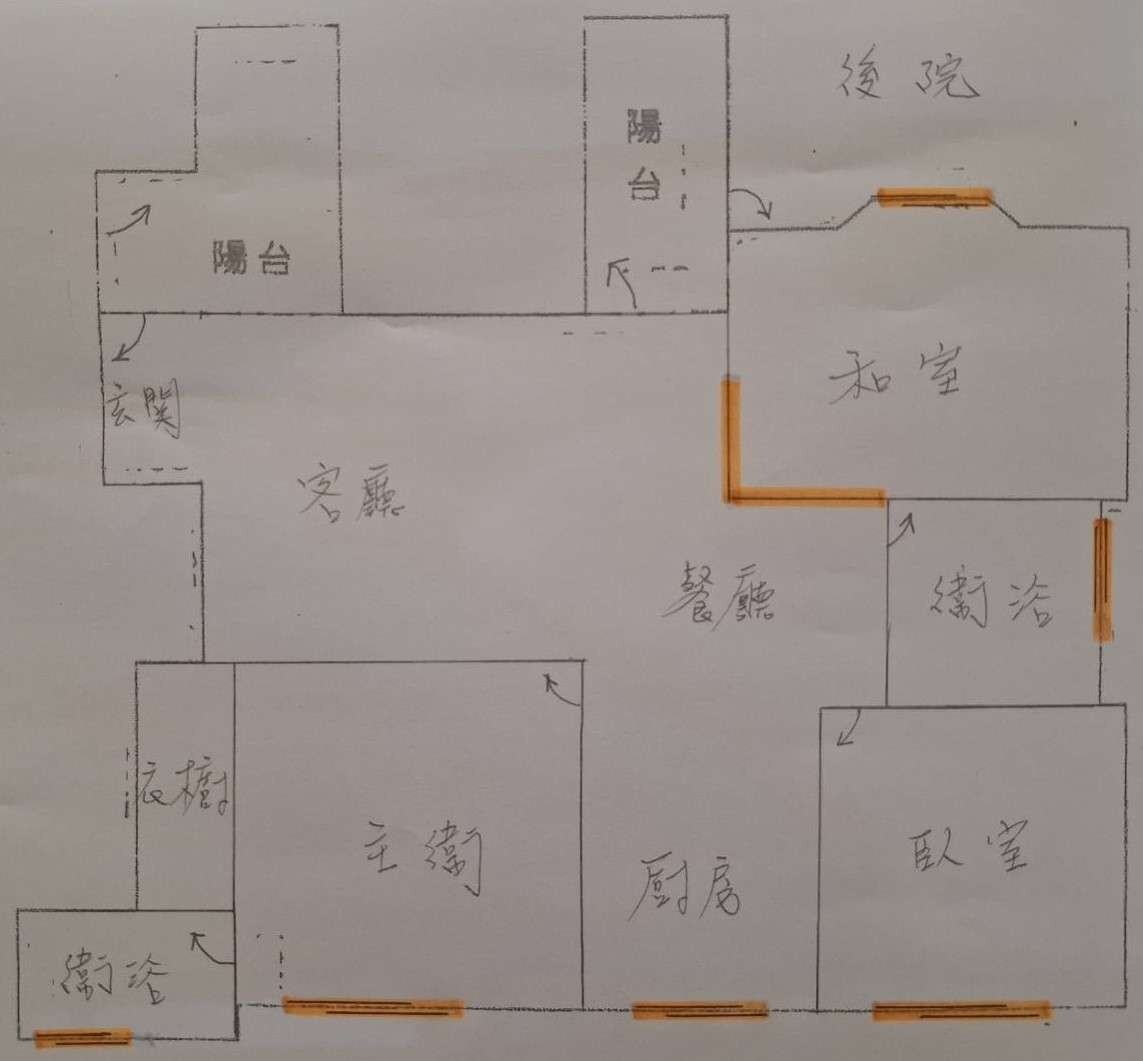 後院
陽台
陽台
和室
玄関
客廳
餐廳
衛浴
衣櫥
主衛
厨房
臥室
衛浴